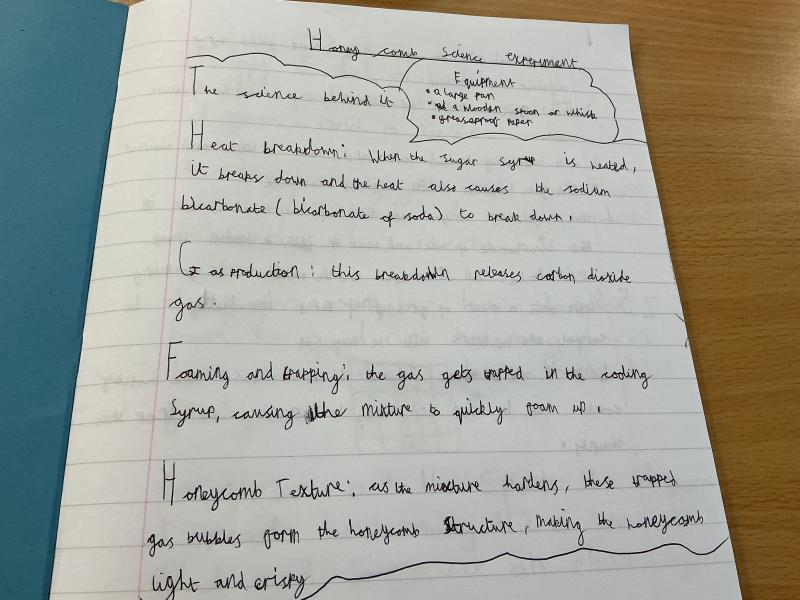 Honey comb science experiment
Equipment
• a large pan
• a wooden spoon or whisk
• greaseproof paper
The science behind it
Heat breakdown: When the sugar syrup is heated,
it breaks down and the heat also causes the sodium
bicarbonate (bicarbonate of soda) to break down.
Gas production: this breakdown releases carbon dioxide
gas.
Foaming and trapping: the gas gets trapped in the cooling
Syrup, causing the mixture to quickly foam up.
Honeycomb Texture: as the mixture hardens, these trapped
gas bubbles form the honeycomb structure, making the honeycomb
light and crispy